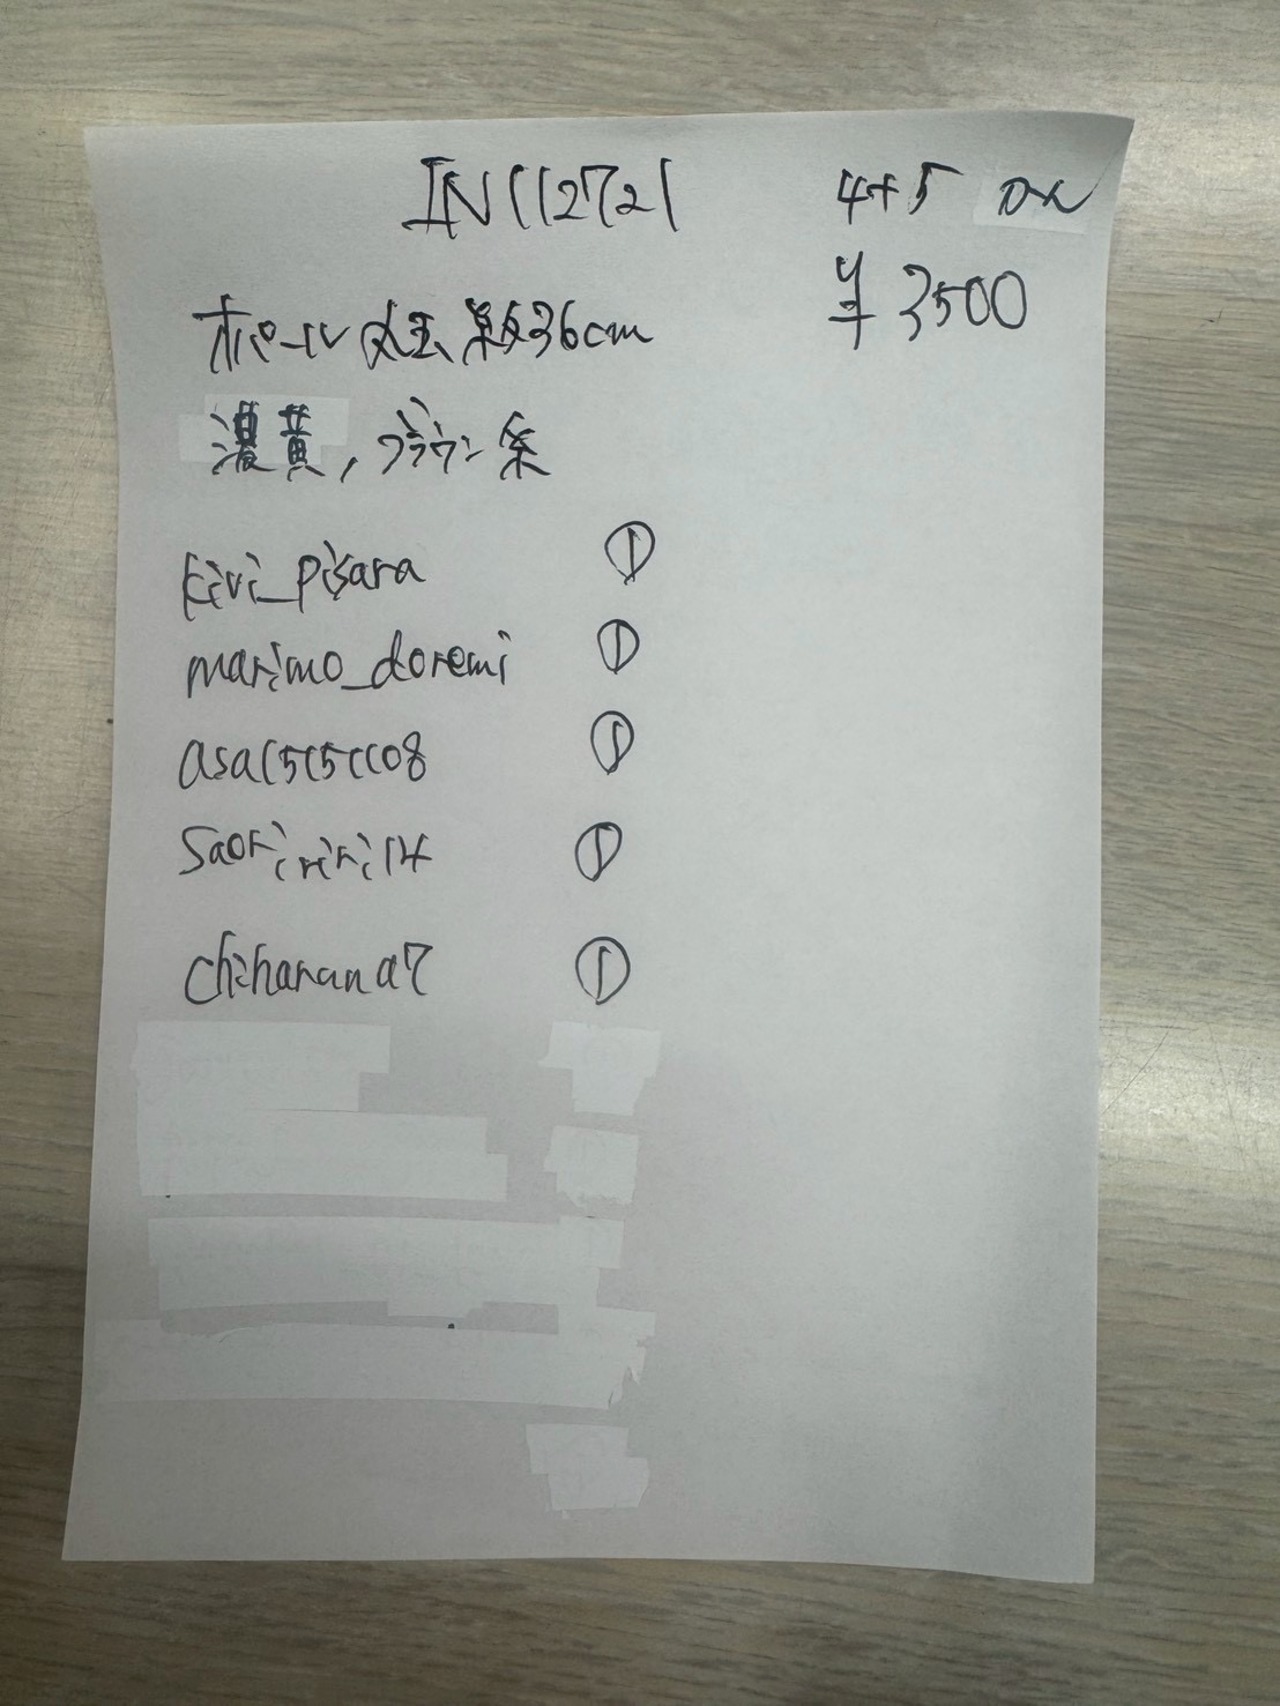 IN112721 4+5 ox
¥3500
オパール 丸玉 約36cm
濃黄, ブラウン系
kivi_pisara ①
marimo_doremi ①
asa15151108 ①
saoririri14 ①
chiharuna7 ①